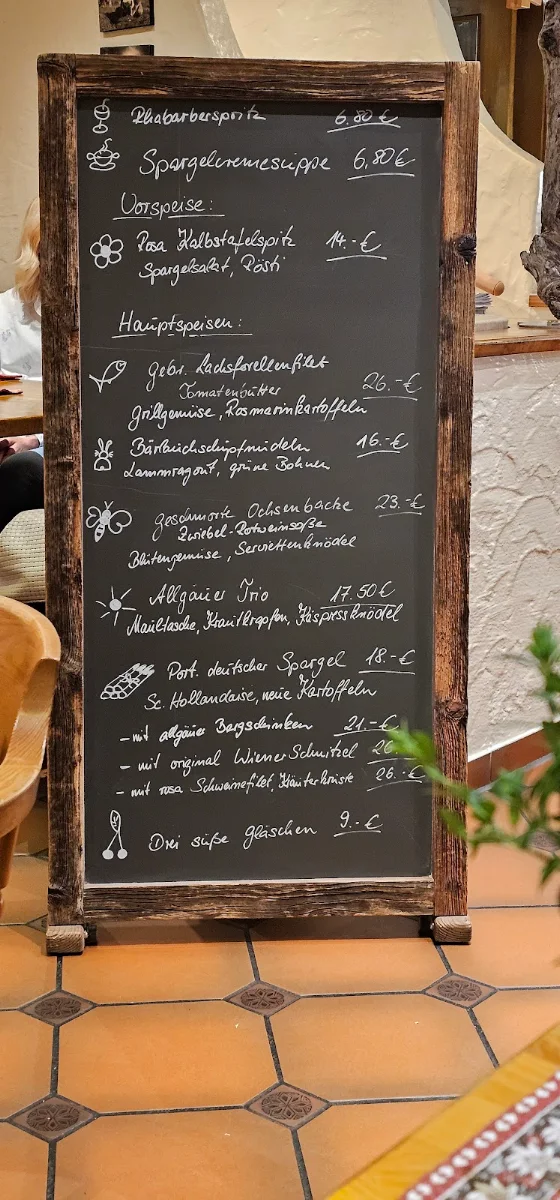 Rhabarberspritz 6.80 €
Spargelcremesuppe 6,80 €
Vorspeise:
Rosa Kalbstafelspitz 14.-€
Spargelsalat, Rösti
Hauptspeisen:
gebr. Lachsforellenfilet
Tomatenbutter 26.-€
Grillgemüse, Rosmarinkartoffeln
Bärlauchschupfnudeln 16.-€
Lammragout, grüne Bohnen
geschmorte Ochsenbacke 23.-€
Zwiebel-Rotweinsoße
Blütengemüse, Serviettenknödel
Allgäuer Trio 17.50€
Maultasche, Krautkrapfen, Käspressknödel
Port. deutscher Spargel 18.-€
Sc. Hollandaise, neue Kartoffeln
- mit allgäuer Bergschinken 21.-€
- mit original Wiener Schnitzel
- mit rosa Schweinefilet, Kräuterkruste 26.-€
Drei süße Gläschen 9.-€